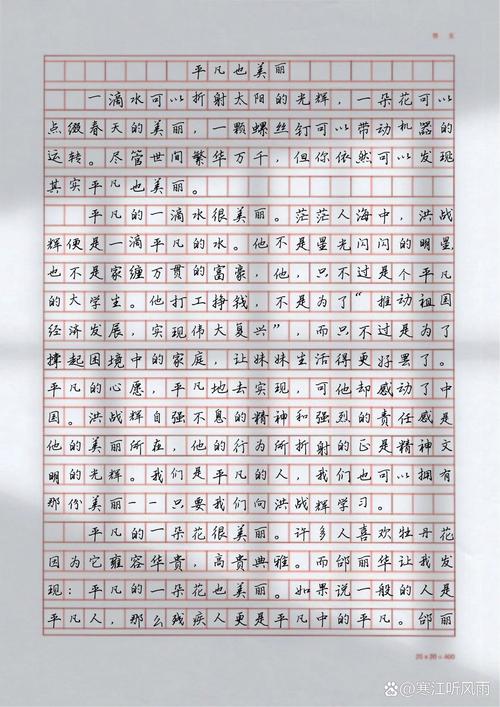 卷 页
平凡也美丽
一滴水可以折射太阳的光辉，一朵花可以
点缀春天的美丽，一颗螺丝钉可以带动机器的
运转。尽管世间繁华万千，但你依然可以发现
其实平凡也美丽。
平凡的一滴水很美丽。茫茫人海中，洪战
辉便是一滴平凡的水。他不是星光闪闪的明星
也不是家缠万贯的富豪，他，只不过是个平凡
的大学生。他打工挣钱，不是为了“推动祖国
经济发展，实现伟大复兴”，而只不过是为了
撑起困境中的家庭，让妹妹生活得更好罢了。
平凡的心愿，平凡地去实现，可他却感动了中
国。洪战辉自强不息的精神和强烈的责任感是
他的美丽所在，他的行为所折射的正是精神文
明的光辉。我们是平凡的人，我们也可以拥有
那份美丽——只要我们向洪战辉学习。
平凡的一朵花很美丽。许多人喜欢牡丹花
因为它雍容华贵，高贵典雅。而邰丽华让我发
现：平凡的一朵花也美丽。如果说一般的人是
平凡人，那么残疾人更是平凡中的平凡。邰丽
20×20=400
@寒江听风雨